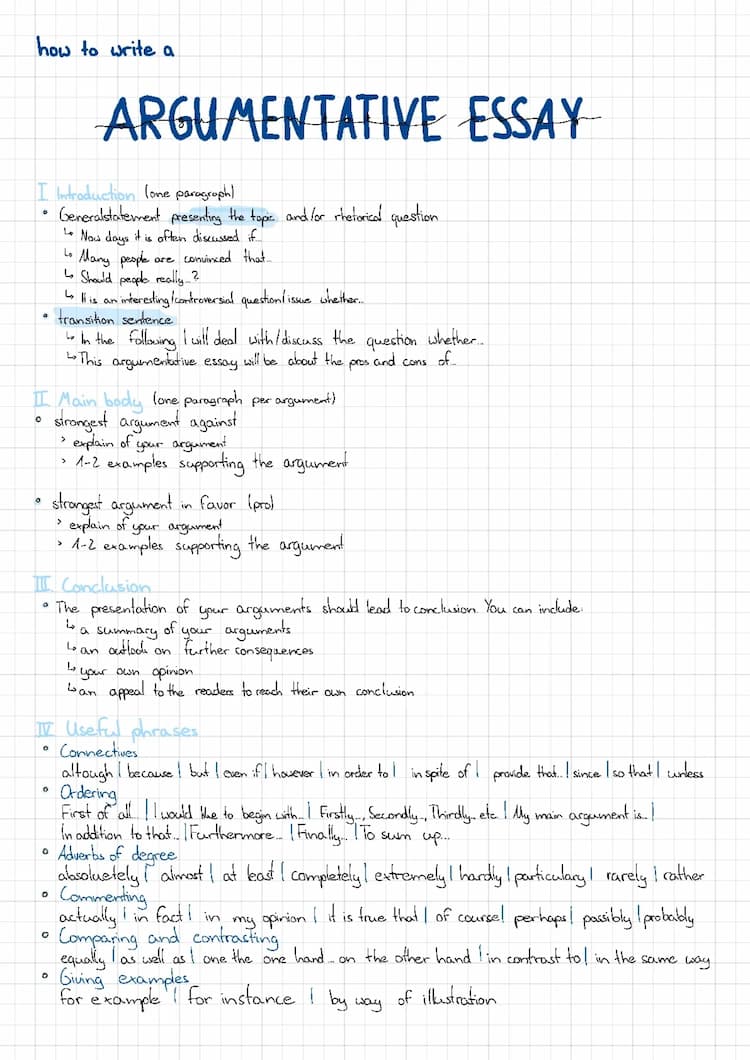 how to write a
ARGUMENTATIVE ESSAY
I Introduction (one paragraph)
• Generalstatement presenting the topic and/or rhetorical question
↳ Now days it is often discussed if...
↳ Many people are convinced that...
↳ Should people really...?
↳ It is an interesting/controversial question/issue whether...
• transition sentence
↳ In the following I will deal with/discuss the question whether...
↳ This argumentative essay will be about the pros and cons of...
II Main body (one paragraph per argument)
• strongest argument against
> explain of your argument
> 1-2 examples supporting the argument
• strongest argument in favor (pro)
> explain of your argument
> 1-2 examples supporting the argument
III Conclusion
• The presentation of your arguments should lead to conclusion. You can include:
↳ a summary of your arguments
↳ an outlook on further consequences
↳ your own opinion
↳ an appeal to the readers to reach their own conclusion
IV Useful phrases
• Connectives
although | because | but | even if | however | in order to | in spite of | provide that... | since | so that | unless
• Ordering
First of all... | I would like to begin with... | Firstly..., Secondly..., Thirdly... etc. | My main argument is... |
In addition to that... | Furthermore... | Finally... | To sum up...
• Adverbs of degree
absoluetely | almost | at least | completely | extremely | hardly | particulary | rarely | rather
• Commenting
actually | in fact | in my opinion | it is true that | of course | perhaps | possibly | probably
• Comparing and contrasting
equally | as well as | one the one hand... on the other hand | in contrast to | in the same way
• Giving examples
for example | for instance | by way of illustration